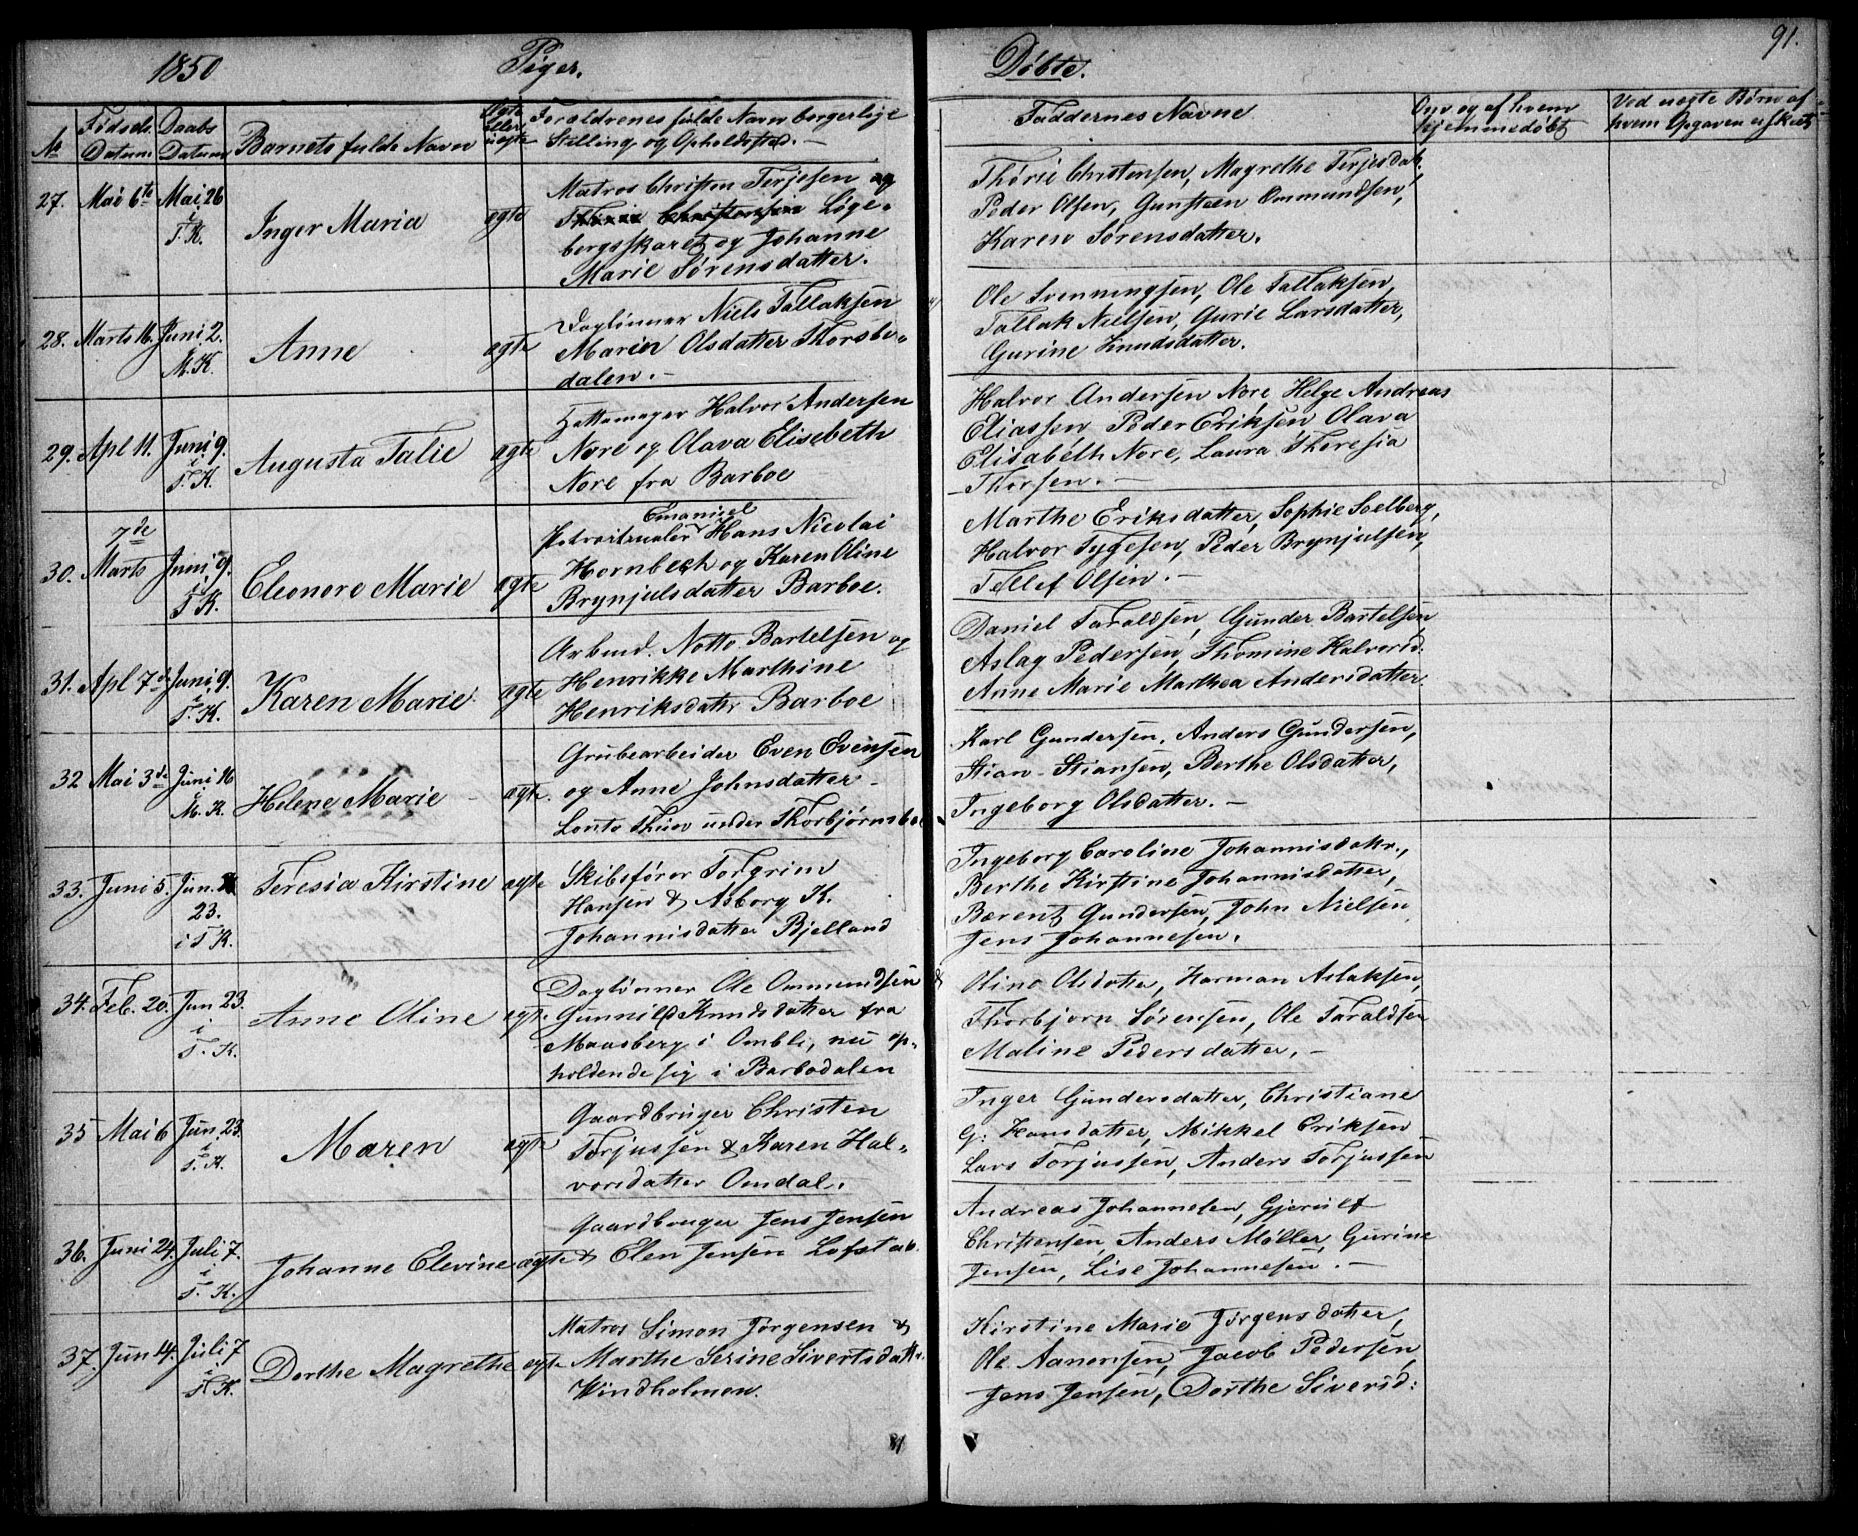 1850 Piger. Døbte. 91.
No Fødsels Datum Daabs Datum Barnets fulde Navn Ægte eller uægte Forældrenes fulde Navn borgerlige Stilling og Opholdssted. Faddernes Navne Om og af hvem hjemmedøbt Ved uægte Børn af hvem Opgaven er skeet
27. Mai 6te Mai 26 i T. K. Inger Maria ægte
Matros Christen Terjesen og
Løge-
bergsskaret og Johanne
Marie Sørensdatter.
Thorie Christensen, Magrethe Terjesdat.
Peder Olsen, Gunsteen Ommundsen,
Karen Sørensdatter.
28. Marts 16. Juni 2. M. K. Anne ægte
Daglönner Niels Tallaksen
Maria Olsdatter Thorsbo-
dalen.
Ole Svenningsen, Ole Tallaksen,
Tallak Nielsen, Gurie Larsdatter,
Gurine Knudsdatter.
29. Apl 11. Juni 9. i T. K. Augusta Talie ægte
Hattemager Halvor Andersen
Nore og Olava Elisebeth
Nore fra Barboe
Halvor Andersen Nore, Helge Andreas
Eliassen Peder Eriksen Olava
Elisabeth Nore, Laura Theresia
Thorsen.
30. 7de Marts Juni 9. i T. K. Eleonore Marie ægte
Emanuel
Hans Nicolai
Hornbech og Karen Oline
Brynjulsdatter Barboe.
Marthe Eriksdatter, Sophie Soelberg,
Halvor Tygesen, Peder Brynjulsen,
Tellef Olsen.
31. Apl 7de Juni 9. i T. K. Karen Marie ægte
Arbmd. Notto Bartelsen og
Henrikke Marthine
Henriksdatr Barboe
Daniel Taraldsen, Gunder Bartelsen,
Aslag Pedersen, Thomine Halvorsd.
Anne Marie Marthea Andersdatter.
32 Mai 3de Juni 16 i M. K. Helene Marie ægte.
Grubearbeider Even Evensen
og Anne Johnsdatter
under Thorbjørnsboe
Karl Gundersen, Anders Gundersen,
Stian Stiansen, Berthe Olsdatter,
Ingeborg Olsdatter.
33. Juni 5. Jun. 23. i T. K. Teresia Kirstine ægte
Skibsfører Torgrim
Hansen & Asborg K.
Johannisdatter Bjelland
Ingeborg Caroline Johannisdatr.,
Berthe Kirstine Johannisdatter,
Berent Gundersen, John Nielsen
Jens Johannesen.
34. Feb. 20. Jun 23. i T. K. Anne Oline ægte
Daglönner Ole Ommundsen &
Gunnild Knudsdatter fra
Maasberg i Ombli, nu op-
holdende sig i Barbodalen
Oline Olsdatter, Harman Aslaksen,
Thorbjørn Sørensen, Ole Taraldsen
Maline Pedersdatter.
35 Mai 6 Jun. 23. i T. K. Maren ægte
Gaardbruger Christen
Torjussen & Karen Hal-
vorsdatter Omdal.
Inger Gundersdatter, Christiane
G: Hansdatter, Mikkel Eriksen
Lars Torjussen, Anders Torjussen
36. Juni 24. Juli 7. i T. K. Johanne Elevine ægte
Gaardbruger Jens Jensen
& Elen Jensen
Andreas Johannesen, Gjerulf
Christensen, Anders Møller, Gurine
Jensen, Lise Johannesen.
37. Jun 14. Juli 7 i T. K. Dorthe Magrethe ægte
Matros Simon Jørgensen &
Marthe Serine Sivertsdattr
Windholmen.
Kirstine Marie Jørgensdatter,
Ole Aanensen, Jacob Pedersen
Jens Jensen, Dorthe Siversd: